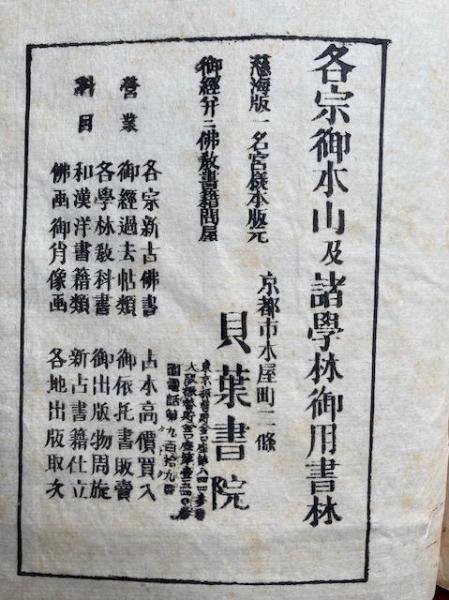 各宗御本山及諸學林御用書林
慈海版一名宮板本版元
御經并ニ佛敎書籍問屋
京都市木屋町二條
貝葉書院
營業
科目
各宗新古佛書
御經過去帖類
各學林敎科書
和漢洋書籍類
佛画御肖像画
古本高價買入
御依托書販賣
御出版物周旋
新古書籍仕立
各地出版取次